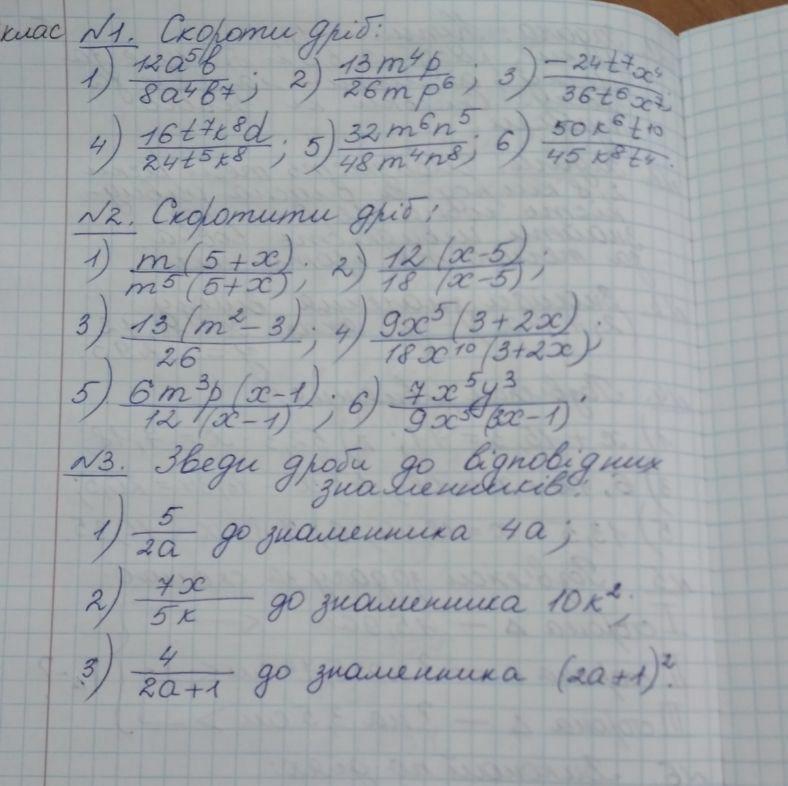 клас №1. Скороти дріб:
1) 12a⁵b/8a⁴b⁷; 2) 13m⁴p/26mp⁶; 3) -24t⁷x⁴/36t⁶x⁷;
4) 16t⁷k⁸d/24t⁵k⁸; 5) 32m⁶n⁵/48m⁴n⁸; 6) 50k⁶t¹⁰/45k⁸t⁴.
№2. Скоротити дріб:
1) m(5+x)/m⁵(5+x); 2) 12(x-5)/18(x-5);
3) 13(m²-3)/26; 4) 9x⁵(3+2x)/18x¹⁰(3+2x);
5) 6m³p(x-1)/12(x-1); 6) 7x⁵y³/9x⁵(3x-1).
№3. Зведи дроби до відповідних
знаменників:
1) 5/2a до знаменника 4a;
2) 7x/5k до знаменника 10k²;
3) 4/2a+1 до знаменника (2a+1)².